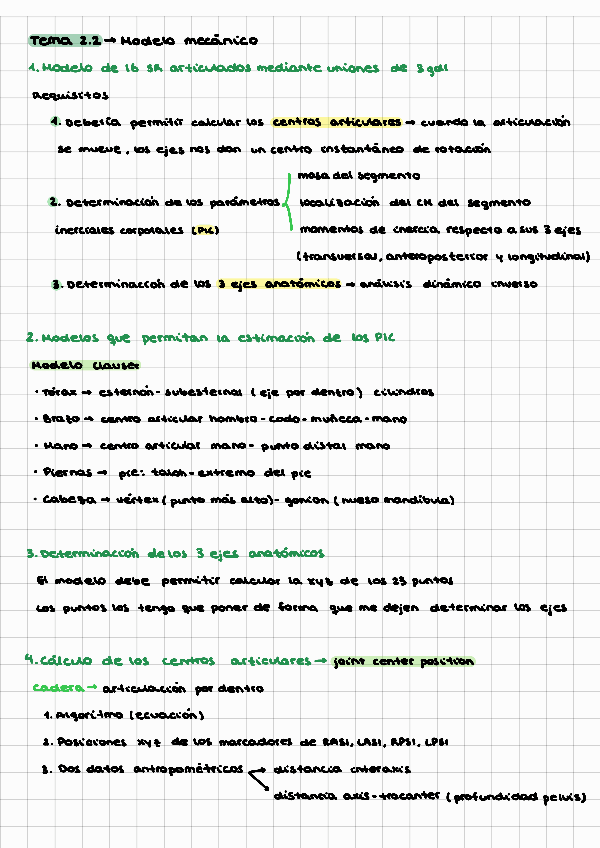 Tema 2.2 → Modelo mecánico
1. Modelo de 16 SR articulados mediante uniones de 3 gdl
Requisitos
1. Debería permitir calcular los centros articulares → cuando la articulación
se mueve, los ejes nos dan un centro instantáneo de rotación
masa del segmento
2. Determinación de los parámetros localización del CM del segmento
inerciales corporales (PIC) momentos de inercia, respecto a sus 3 ejes
(transversal, anteroposterior y longitudinal)
3. Determinación de los 3 ejes anatómicos → análisis dinámico inverso
2. Modelos que permitan la estimación de los PIC
Modelo Clauser
· Tórax → esternón - subesternal (eje por dentro) cilindros
· Brazo → centro articular hombro - codo - muñeca - mano
· Mano → centro articular mano - punto distal mano
· Piernas → pie: talón - extremo del pie
· Cabeza → vértex (punto más alto) - gonion (hueso mandíbula)
3. Determinación de los 3 ejes anatómicos
El modelo debe permitir calcular la xyz de los 23 puntos
Los puntos los tengo que poner de forma que me dejen determinar los ejes
4. Cálculo de los centros articulares → joint center position
Cadera → articulación por dentro
1. Algoritmo (ecuación)
2. Posiciones xyz de los marcadores de RASI, LASI, RPSI, LPSI
3. Dos datos antropométricos → distancia interaxis
distancia axis - trocanter (profundidad pelvis)